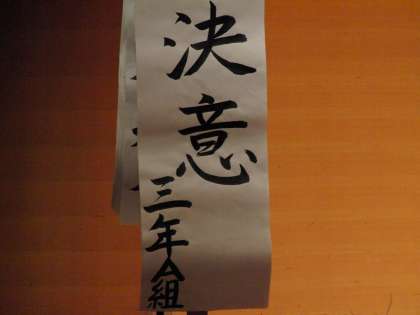 決意
三年A組